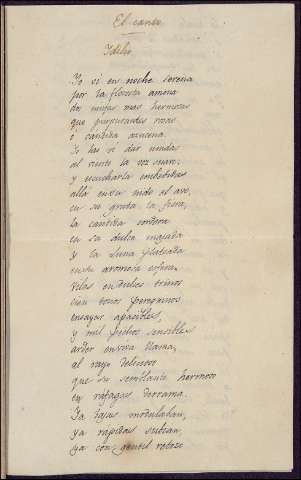 El canto
Idilio
Yo vi en noche serena
por la floresta amena
dos ninfas mas hermosas
que purpurantes rosas
o candida azucena.
Yo las vi dar unidas
al viento la voz suave;
y escucharla embebidas
alla en su nido al ave,
en su gruta la fiera,
la candida cordera
en su dulce majada
y la Luna plateada
en su argentea esfera.
Vilas en dulces trinos
con tonos peregrinos
ensayar apacibles,
y mil pechos sensibles
arder en viva llama,
al rayo delicioso
que su semblante hermoso
en ráfagas derrama.
Ya bajas modulaban,
ya rapidas subian,
ya con gentil retozo